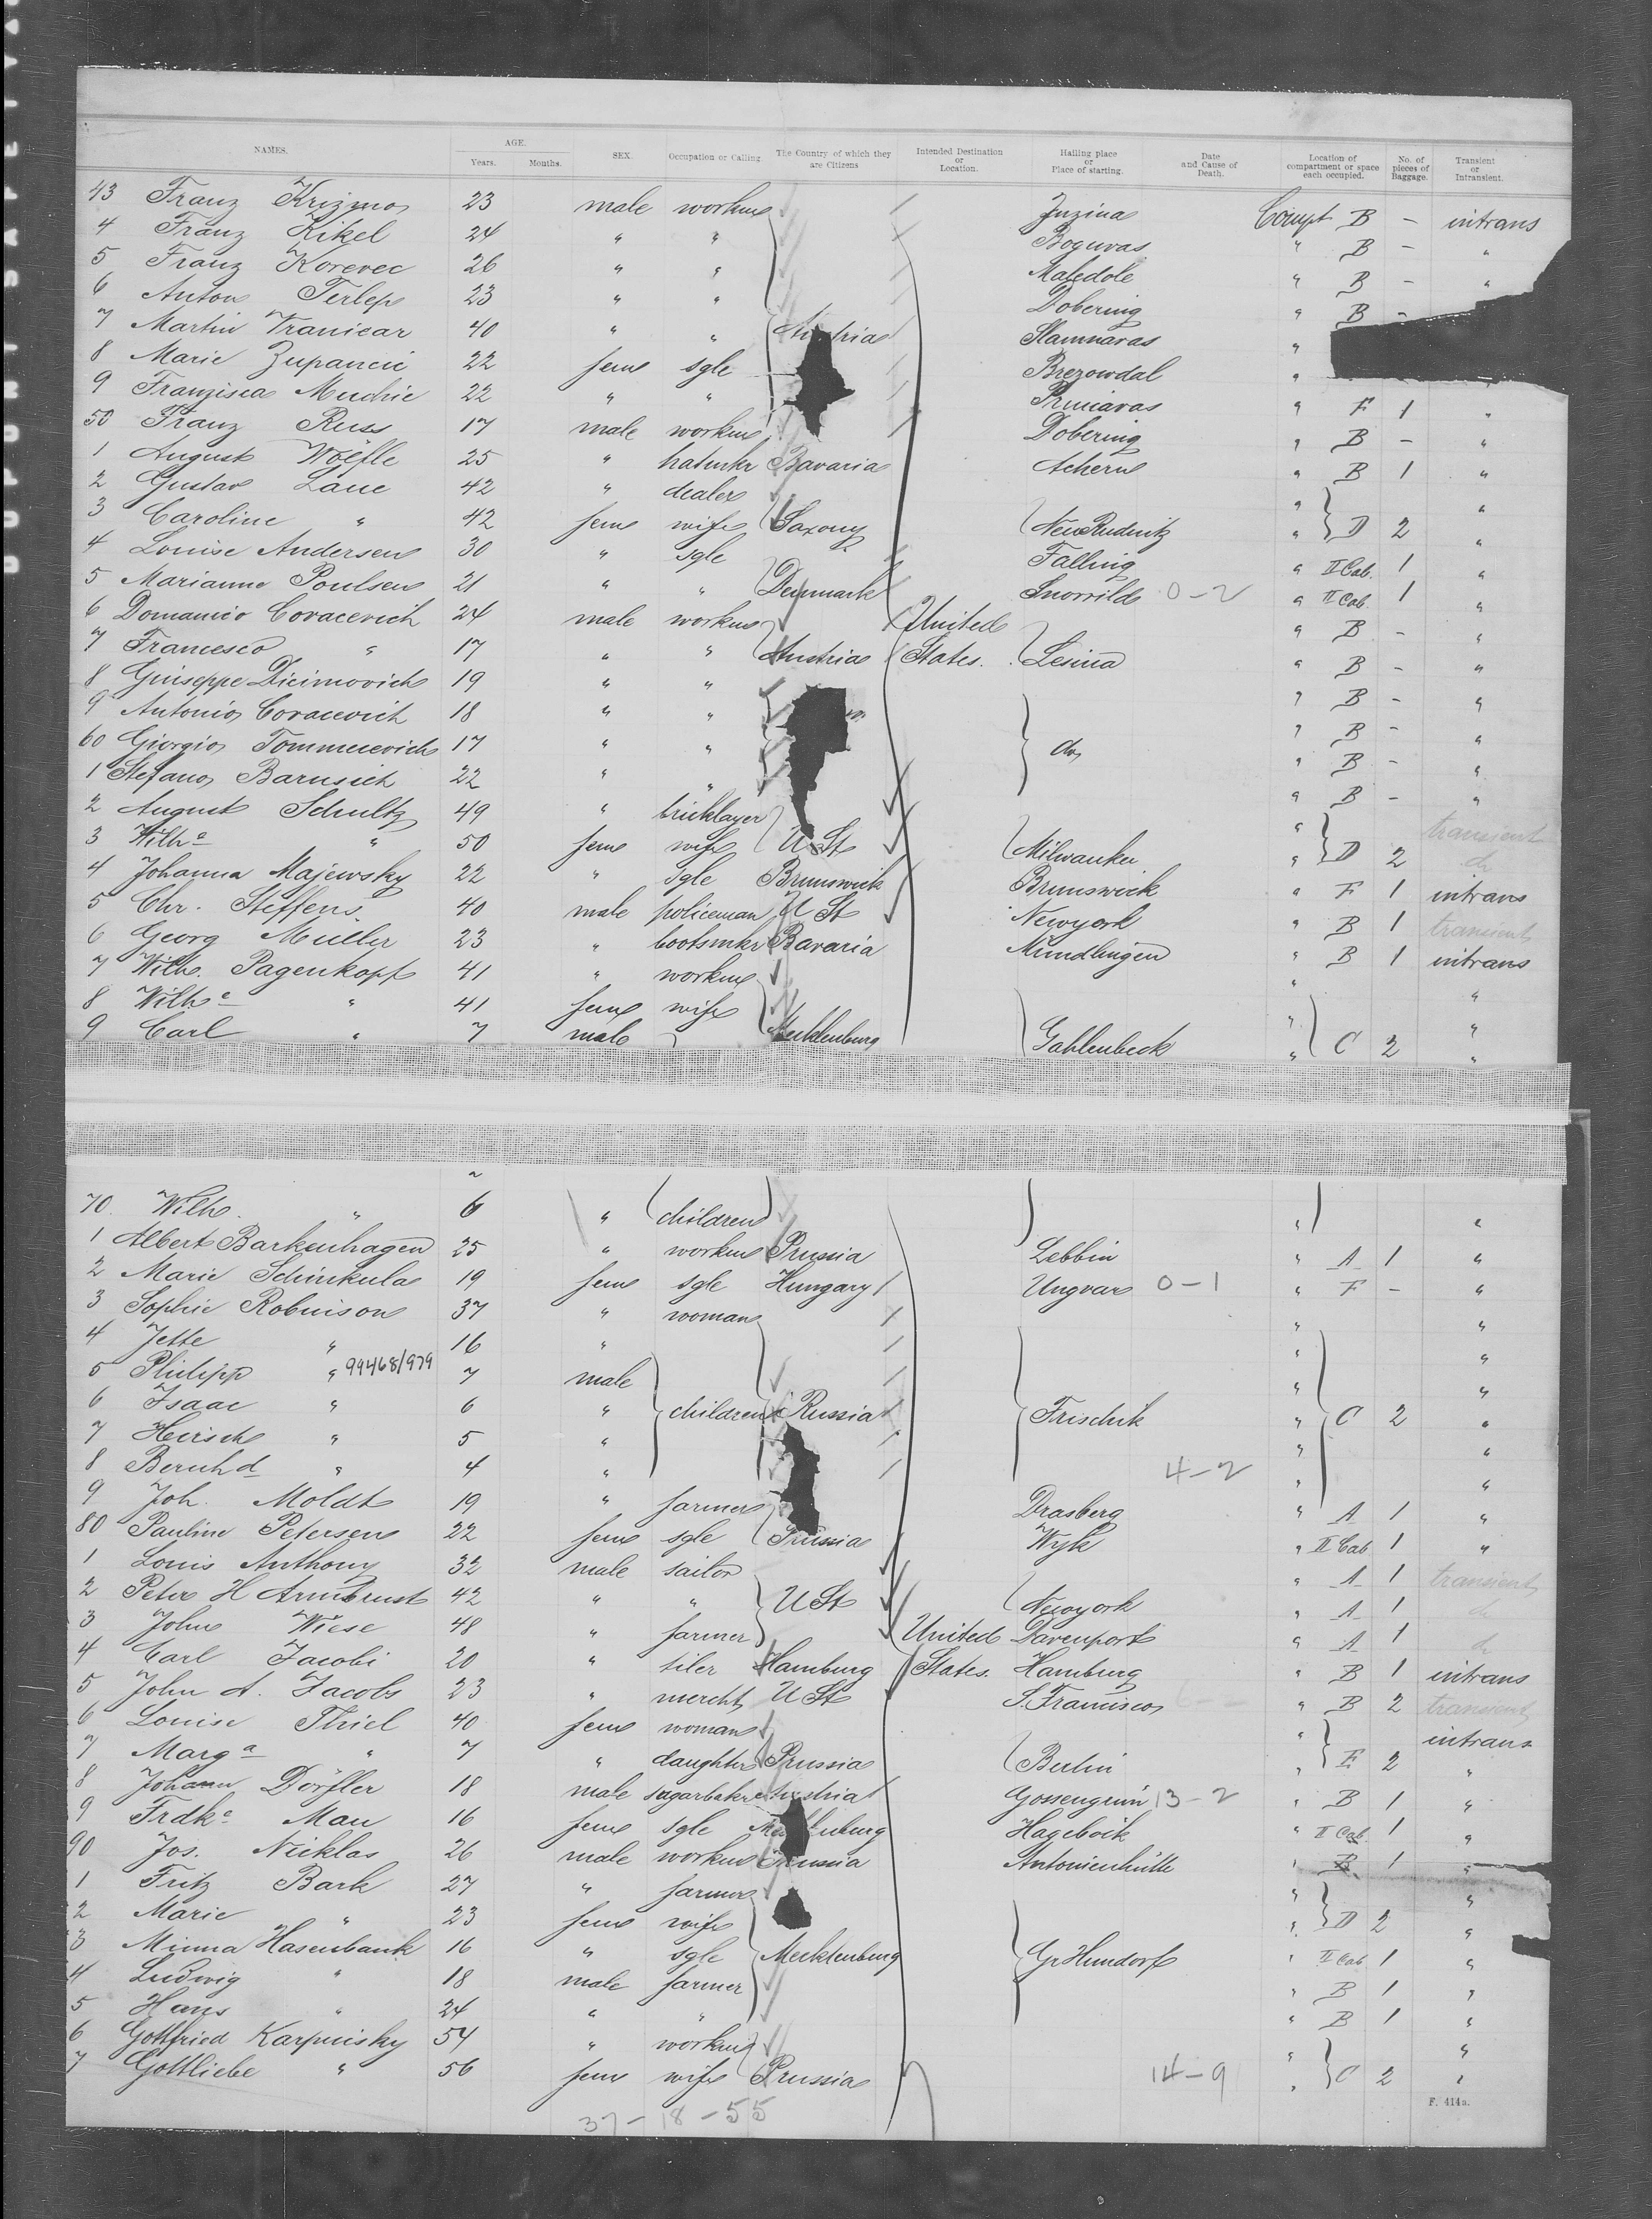 NAMES. AGE. Years. Months. SEX. Occupation or Calling. The Country of which they are Citizens Intended Destination or Location. Hailing place or Place of starting. Date and Cause of Death. Location of compartment or space each occupied. No. of pieces of Baggage. Transient or Intransient.
43 Franz 23 male workm Compt B - intrans
4 Franz Kikel 24 " " " B - "
5 Franz Korevec 26 " " Maledole " B - "
6 Anton Terlep 23 " " Dobering " B -
7 Martin 40 " " Austria "
8 Marie Zupancic 22 fem sgle Brezowdal "
9 Franzisca Muchic 22 " " " F 1 "
50 Franz Russ 17 male workm Dobering " B - "
1 August Wölfle 25 " hatmkr Bavaria Achern " B 1 "
2 Gustav Laue 42 " dealer " "
3 Caroline " 42 fem wife Saxony NeuRudnitz " D 2 "
4 Louise Andersen 30 " sgle Falling " II Cab. 1 "
5 Marianne Poulsen 21 " " Denmark Snorrild 0-2 " II Cab. 1 "
6 Domanico Coracevich 24 male workm United " B - "
7 Francesco " 17 " " Austria States. Lesina " B - "
8 Giuseppe Dicimovich 19 " " " B - "
9 Antonio Coracevich 18 " " " B - "
60 Giorgio 17 " " do " B - "
1 Stefano Barusich 22 " " " B - "
2 August Schultz 49 " bricklayer " transient
3 Wilhe " 50 fem wife U St Milwaukee " D 2 do
4 Johanna Majewsky 22 " sgle Brunswick Brunswick " F 1 intrans
5 Chr. Steffens 40 male policeman U St Newyork " B 1 transient
6 Georg Müller 23 " bootsmkr Bavaria Mundlingen " B 1 intrans
7 Wilh. Pagenkopf 41 " workm " "
8 Wilhe " 41 fem wife " "
9 Carl " 7 male Mecklenburg Gahlenbeck " C 2 "
70. Wilh. " 6 " children " "
1 Albert Barkenhagen 25 " workm Prussia Lebbin " A 1 "
2 Marie Schinkula 19 fem sgle Hungary Ungvar 0-1 " F - "
3 Sophie Robinson 37 " woman " "
4 Jette " 16 " " "
5 Philipp " 99468/979 7 male " "
6 Isaac " 6 " children Russia Frischik " C 2 "
7 Hirsch " 5 " " "
8 Bernhd " 4 " 4-2 " "
9 Joh. Moldt 19 " farmer Drasberg " A 1 "
80 Pauline Petersen 22 fem sgle Prussia Wyk " II Cab 1 "
1 Louis Anthony 32 male sailor " A 1 transient
2 Peter H Armbrust 42 " " U St Newyork " A 1 do
3 John Wiese 48 " farmer United Davenport " A 1 do
4 Carl Jacobi 20 " tiler Hamburg States. Hamburg " B 1 intrans
5 John A. Jacobs 23 " mercht U St S. Francisco " B 2 transient
6 Louise Thiel 40 fem woman " intrans
7 Marga " 7 " daughter Prussia Berlin " E 2 "
8 Johann Dörfler 18 male sugarbakr Austria Gossengrün 13-2 " B 1 "
9 Frdke Mau 16 fem sgle Mecklenburg Hageböck " II Cab 1 "
90 Jos. Nicklas 26 male workm Prussia Antonienhütte " B 1 "
1 Fritz Bark 27 " farmer " "
2 Marie " 23 fem wife " D 2 "
3 Minna Hasenbank 16 " sgle Mecklenburg Gr Hundorf " II Cab 1 "
4 Ludwig " 18 male farmer " B 1 "
5 Hans " 24 " " " B 1 "
6 Gottfried Karpinsky 54 " workm " "
7 Gottliebe " 56 fem wife Prussia 14-9 " C 2 "
F. 414a.
37-18-55